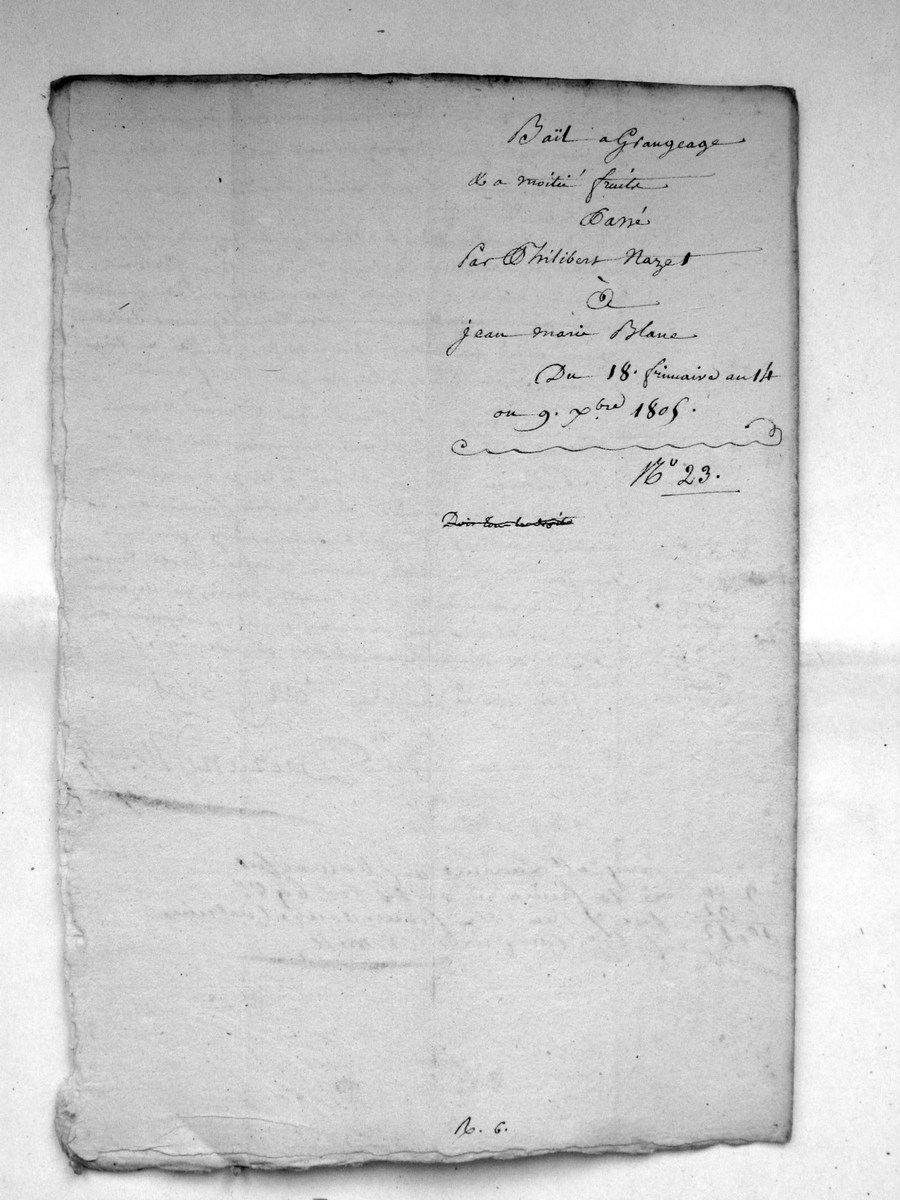 Baïl a Grangeage
& a moitié fruits
Passé
Par Philibert Nazet
À
jean marie Blanc
Du 18. frimaire an 14
ou 9. xbre 1805.
No 23.
R. 6.